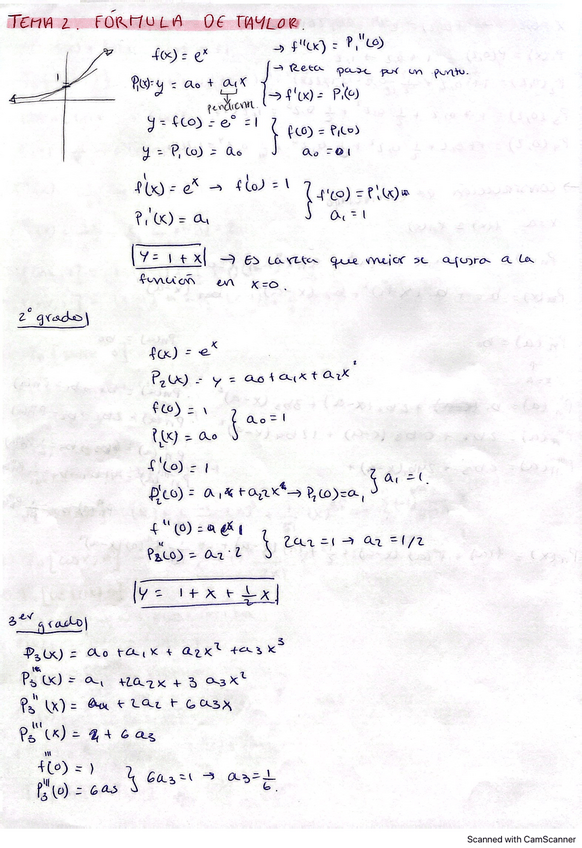 TEMA 2. FÓRMULA DE TAYLOR.
f(x) = e^x → f''(x) = P₁''(0)
P₁(x)=y = a₀ + a₁x → Reta pase por un punto.
pendiente → f'(x) = P₁'(0)
1
y = f(0) = e⁰ = 1 } f(0) = P₁(0)
y = P₁(0) = a₀ a₀ = 1
f'(x) = e^x → f'(0) = 1 } f'(0) = P₁'(x)
P₁'(x) = a₁ a₁ = 1
y = 1 + x → Es la reta que mejor se ajusta a la
función en x=0.
2º grado
f(x) = e^x
P₂(x) = y = a₀ + a₁x + a₂x²
f(0) = 1 } a₀ = 1
P₂(x) = a₀
f'(0) = 1 } a₁ = 1.
P₂'(0) = a₁ + a₂2x → P₂(0) = a₁
f''(0) = 1 } 2a₂ = 1 → a₂ = 1/2
P₂''(0) = a₂·2
y = 1 + x + 1/2 x
3er grado
P₃(x) = a₀ + a₁x + a₂x² + a₃x³
P₃'(x) = a₁ + 2a₂x + 3a₃x²
P₃''(x) = + 2a₂ + 6a₃x
P₃'''(x) = + 6a₃
f'''(0) = 1 } 6a₃ = 1 → a₃ = 1/6.
P₃'''(0) = 6a₃
Scanned with CamScanner